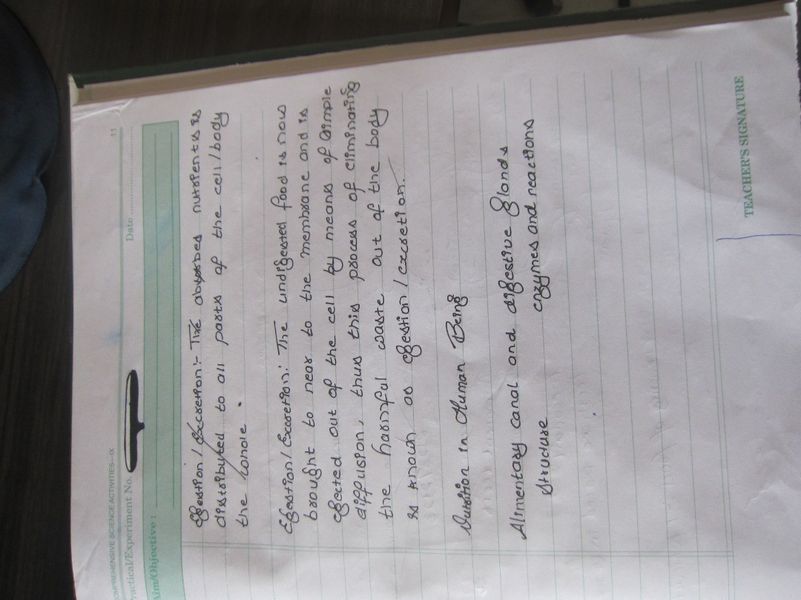 COMPREHENSIVE SCIENCE ACTIVITIES—IX
11
Practical/Experiment No.
Date
Aim/Objective :
Egestion / Excretion:- The absorbed nutrients is
distributed to all parts of the cell/body
the whole.
Egestion / Excretion: The undigested food is now
brought to near to the membrane and is
egected out of the cell by means of simple
diffusion, thus this process of eliminating
the harmful waste out of the body
is known as egestion / excretion.
Nutrition in Human Being
Alimentary canal and digestive glands
structure enzymes and reactions
TEACHER'S SIGNATURE